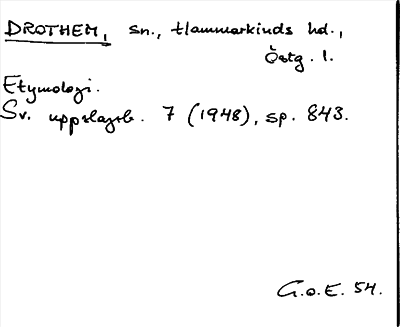 DROTHEM, sn., Hammarkinds hd.,
Östg. l.
Etymologi.
Sv. uppslagsb. 7 (1948), sp. 843.
G.o.E. 54.